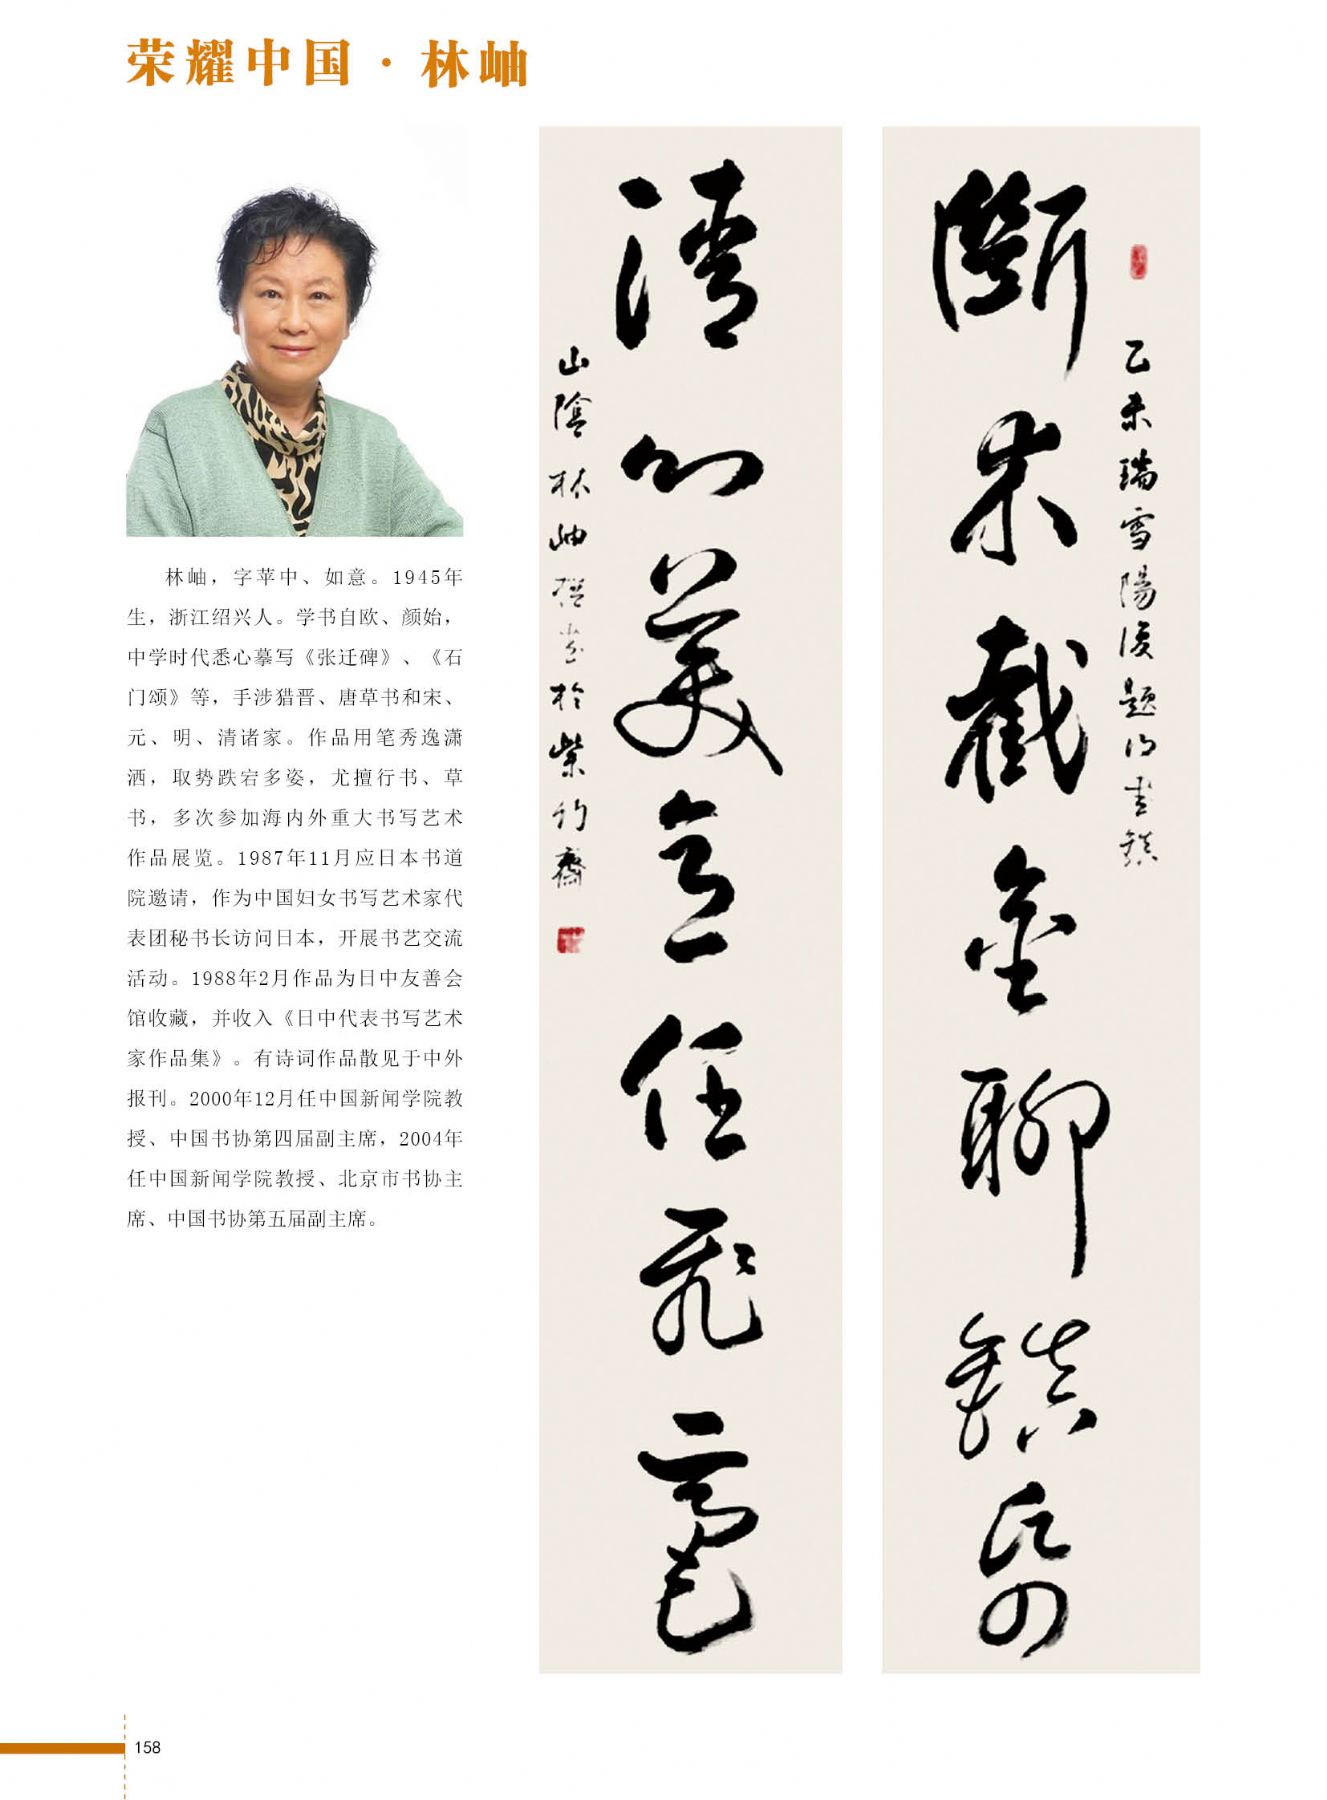 荣耀中国·林岫
林岫，字苹中、如意。1945年
生，浙江绍兴人。学书自欧、颜始，
中学时代悉心摹写《张迁碑》、《石
门颂》等，手涉猎晋、唐草书和宋、
元、明、清诸家。作品用笔秀逸潇
洒，取势跌宕多姿，尤擅行书、草
书，多次参加海内外重大书写艺术
作品展览。1987年11月应日本书道
院邀请，作为中国妇女书写艺术家代
表团秘书长访问日本，开展书艺交流
活动。1988年2月作品为日中友善会
馆收藏，并收入《日中代表书写艺术
家作品集》。有诗词作品散见于中外
报刊。2000年12月任中国新闻学院教
授、中国书协第四届副主席，2004年
任中国新闻学院教授、北京市书协主
席、中国书协第五届副主席。
乙未瑞雪陽後題書鎮
斷木截金聊鎮紙
清心美意任飛毫
山陰林岫撰並書於紫竹齋
158